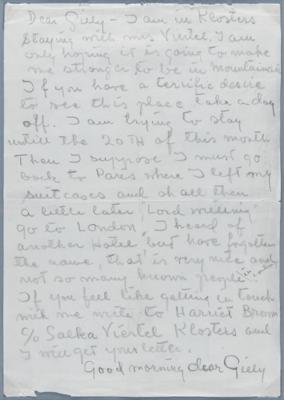 Dear Giely - I am in Klosters
staying with mrs Viertel, I am
only hoping it is going to make
me stronger to be in mountainair
If you have a terrific desire
to see this place take a day
off. I am trying to stay
untill the 20TH of this month
Then I suppose I must go
back to Paris where I left my
suitcases and shall then
a little later "Lord willing"
go to London. I heard of
another Hotel but have forgotten
the name, that is very nice and
not so many known people in London
If you feel like getting in touch
with me write to Harriet Brown
c/o Salka Viertel Klosters and
I will get your letter.
Good morning dear Giely